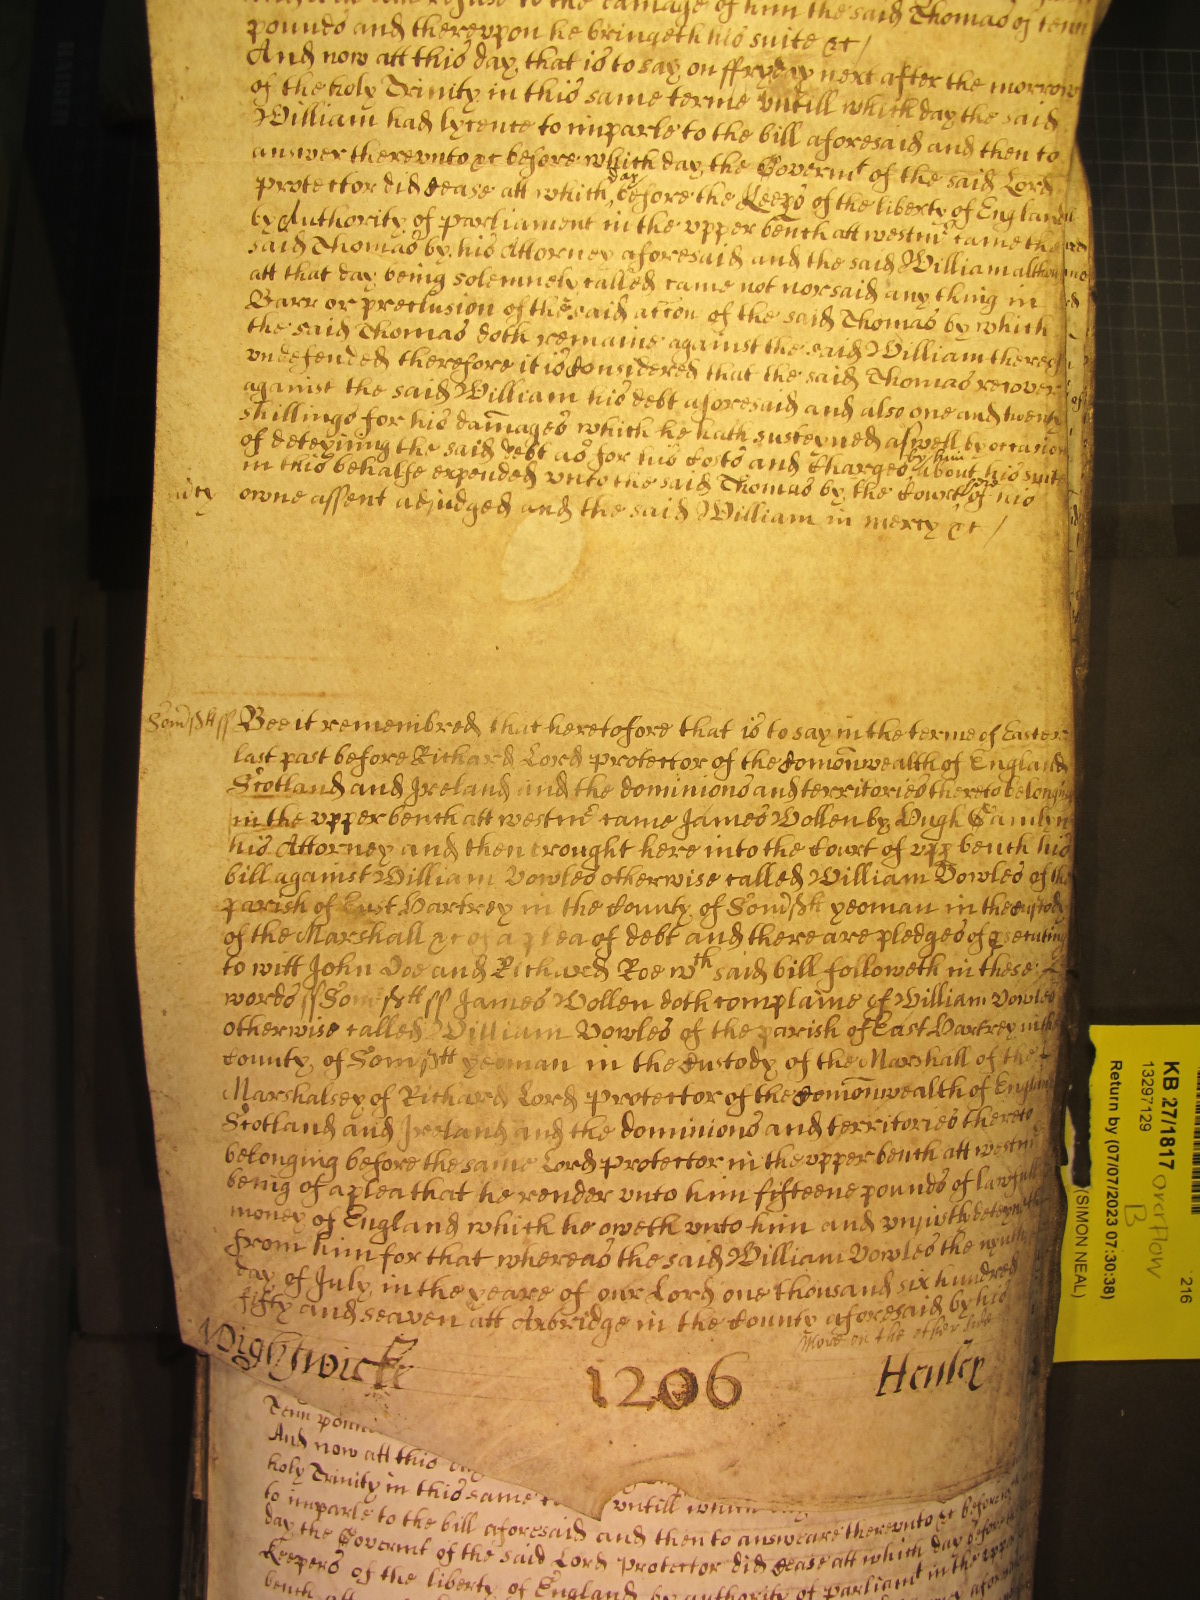 to the damage of him the said Thomas of tenn
pounds and thereuppon he bringeth his suite &c /
And now att this day that is to say on ffryday next after the morrow
of the holy Trinity in this same terme untill which day the said
William had lycence to imparle to the bill aforesaid and then to
answer thereunto &c before which day the Governmt of the said Lord
Protector did cease att which day before the Keeps of the liberty of England
by Authority of parliament in the upper bench att westmr came the
said Thomas by his Attorney aforesaid and the said William
att that day being solemnely called came not nor said any thing in
Barr or preclusion of the said accon of the said Thomas by which
the said Thomas doth remaine against the said William thereof
undefended therefore it is considered that the said Thomas recover
against the said William his debt aforesaid and also one and twenty
shillings for his damages which he hath susteyned aswell by occasion
of deteyning the said debt as for his costs and charges by him about his suite
in this behalfe expended unto the said Thomas by the Court of his
owne assent adjudged and the said William in mercy &c /
Somsett ss Bee it remembred that heretofore that is to say in the terme of Easter
last past before Richard Lord Protector of the Comonwealth of England
Scotland and Ireland and the dominions and territories thereto belonging
in the upper bench att westmr came James Vollen by Hugh
his Attorney and then brought here into the Court of upp bench his
bill against William Vowles otherwise called William Vowles of the
parish of East Hartrey in the County of Somsett yeoman in the custody
of the Marshall &c of a plea of debt and there are pledges of psecuting
to witt John Doe and Richard Roe wch said bill followeth in these
words ss Somsett ss James Vollen doth complaine of William Vowles
otherwise called William Vowles of the parish of East Hartrey in the
County of Somsett yeoman in the Custody of the Marshall of the
Marshalsey of Richard Lord Protector of the Comonwealth of England
Scotland and Ireland and the dominions and territories thereto
belonging before the same Lord Protector in the upper bench att westmr
being of a plea that he render unto him fifteene pounds of lawfull
money of England which he oweth unto him and unjustly deteyneth
from him for that whereas the said William Vowles the nynth
day of July in the yeare of our Lord one thousand six hundred
fifty and seaven att Axbridge in the County aforesaid by his
More on the other side
Wightwicke 1206 Henley
Tenn pounds
And now att this
holy Trinity in this same untill which day
to imparle to the bill aforesaid and then to answeare thereunto &c before
day the Governmt of the said Lord Protector did cease att which day before the
Keepers of the liberty of England by authority of Parliamt in the upper
bench att
KB 27/1817 overflow B
13297129
Return by (07/07/2023 07:30:38)
(SIMON NEAL)
216